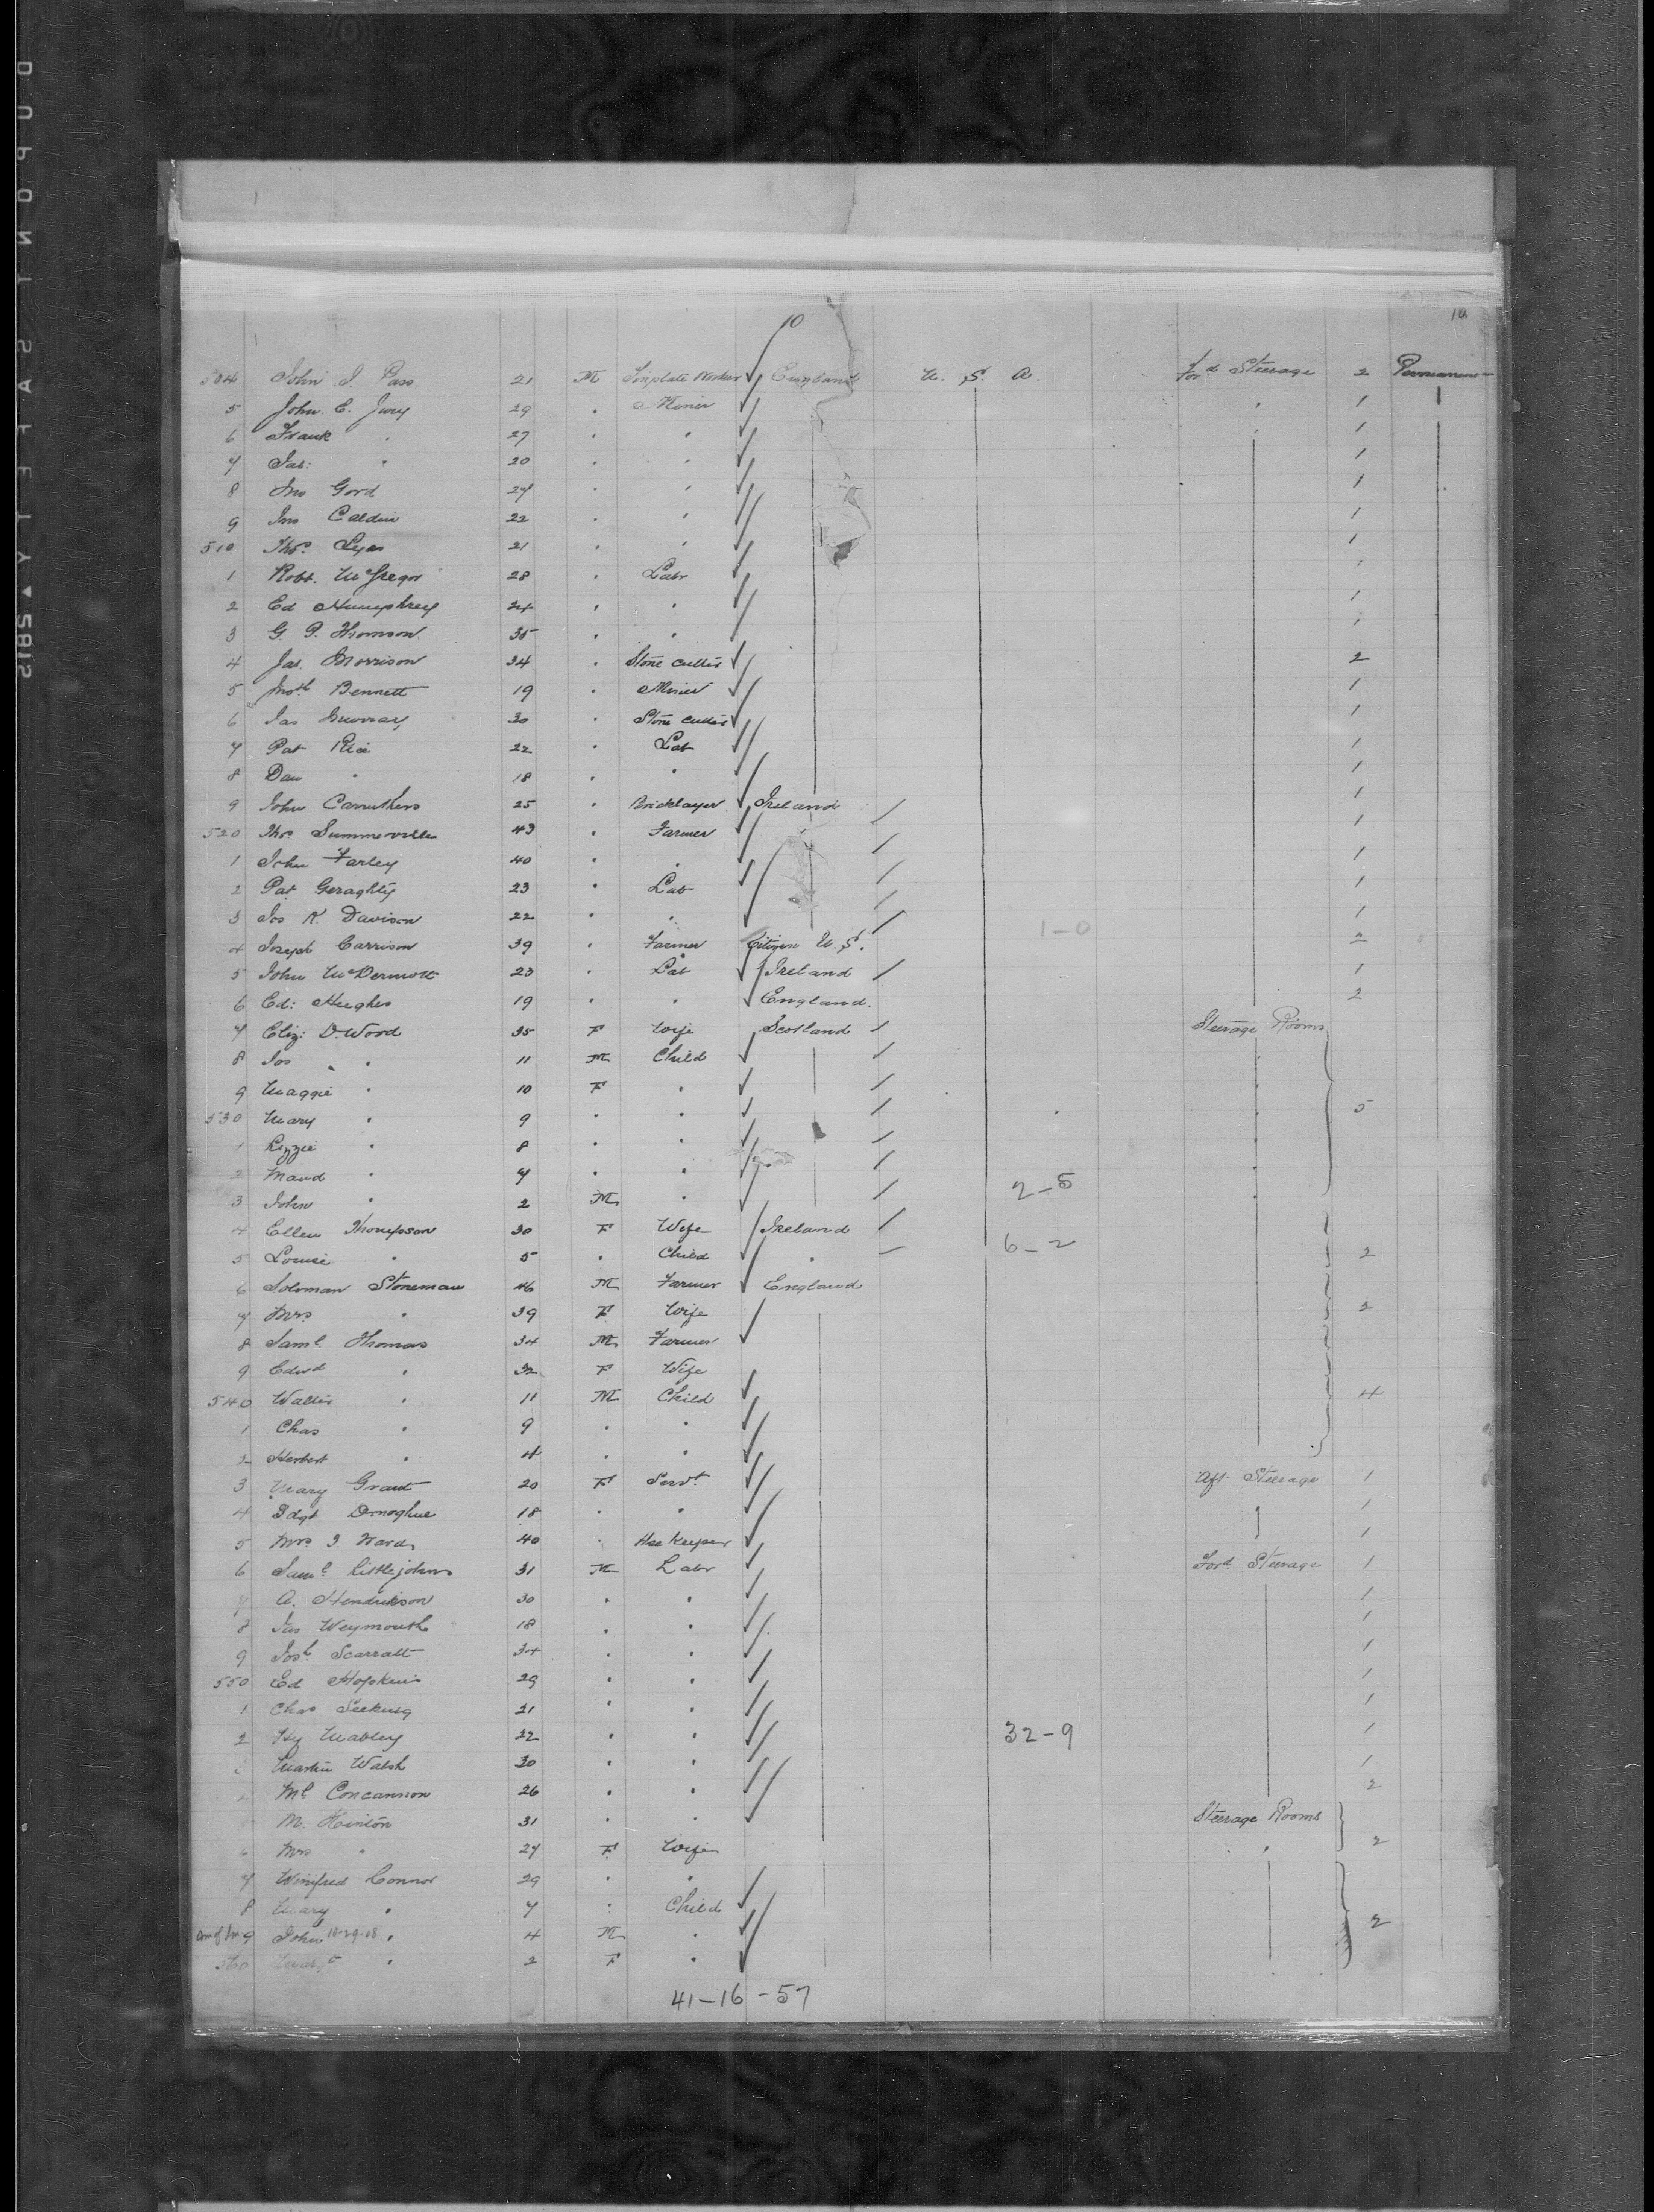 10
10
504 John J. Pass 21 M Tinplate Worker England U. S. A. Ford Steerage 2 Permanent
5 John. C. Jury 29 " Miner 1
6 Frank " 27 " " 1
7 Jas: " 20 " " 1
8 Jno Gord 27 " " 1
9 Jno 22 " " 1
510 Thos. 21 " " 1
1 Robt. McGregor 28 " Labr 1
2 Ed Humphrey 24 " " 1
3 G. P. Thomson 35 " " 1
4 Jas. Morrison 34 " Stone cutter 2
5 Bennett 19 " Miner 1
6 Jas Murray 30 " Stone cutter 1
7 Pat Rice 22 " Lab 1
8 Dan " 18 " " 1
9 John Carruthers 25 " Bricklayer Ireland 1
520 Thos Summerville 43 " Farmer 1
1 John Farley 40 " " 1
2 Pat Geraghty 23 " Lab 1
3 Jos K. Davison 22 " " 1
1-0
4 Joseph Carrison 39 " Farmer Citizen U. S. 2
5 John McDermott 23 " Lab Ireland 1
6 Ed: Hughes 19 " " England. 2
7 Eliz: D. Wood 35 F Wife Scotland Steerage Rooms
8 Jos " " 11 M Child
9 Maggie " 10 F "
530 Mary " 9 " " 5
1 Lizzie " 8 " "
2 Maud " 7 " "
3 John " 2 M " 2-5
4 Ellen Thompson 30 F Wife Ireland
5 Louisa " 5 " Child " 6-2 2
6 Soloman Stoneman 46 M Farmer England
7 Mrs " 39 F Wife 2
8 Saml Thomas 34 M Farmer
9 Edwd " 32 F Wife
540 Walter " 11 M Child 4
1 Chas " 9 " "
2 Herbert " 4 " "
3 Mary Grant 20 F Servt. Aft Steerage 1
4 Bdgt Donoghue 18 " " 1
5 Mrs J. Ward 40 " Hse Keeper 1
6 Saml Littlejohns 31 M Labr Ford Steerage 1
7 A. Hendrikson 30 " " 1
8 Jas Weymouth 18 " " 1
9 Josh Scarratt 34 " " 1
550 Ed Hopkins 29 " " 1
1 Chas 21 " " 1
2 Hy Mabley 22 " " 32-9 1
3 Martin Walsh 30 " " 1
4 Ml Concannon 26 " " 2
5 M. Hinton 31 " " Steerage Rooms
6 Mrs " 27 F Wife " 2
7 Winifred Connor 29 " "
8 Mary " 7 " Child
9 John 10-29-08 " 4 M " 2
560 " 2 F "
41-16-57
DUPONT SAFETY 5852